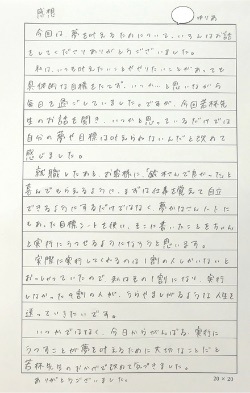 感想
ゆりあ
今回は、夢を叶えるためについて、いろんなお話
をしてくださりありがとうございました。
私は、いつも叶えたいことややりたいことがあっても
具体的な目標をたてず、いつかと思いながら
毎日を過ごしていました。ですが、今回若林先
生のお話を聞き、いつかと思っているだけでは
自分の夢や目標は叶えられないんだと改めて
感じました。
就職したあと、お客様に、"敏子さんで良かった"と
喜んでもらえるように、まずは仕事を覚えて自立
できるようにするだけではなく、夢かなノートに
もあった目標シートを使い、そこに書いたことをちゃん
と実行にうつせるようになろうと思います。
実際に実行してくれるのは1割の人しかいないと
おっしゃっていたので、私はその1割になり、実行
しなかった9割の人が、うらやましがるような人生を
送っていきたいです。
いつかではなく、今日からがんばる、実行に
うつすことが夢を叶えるために大切なことだと
若林先生のおかげで改めて気づきました。
ありがとうございました。
20×20